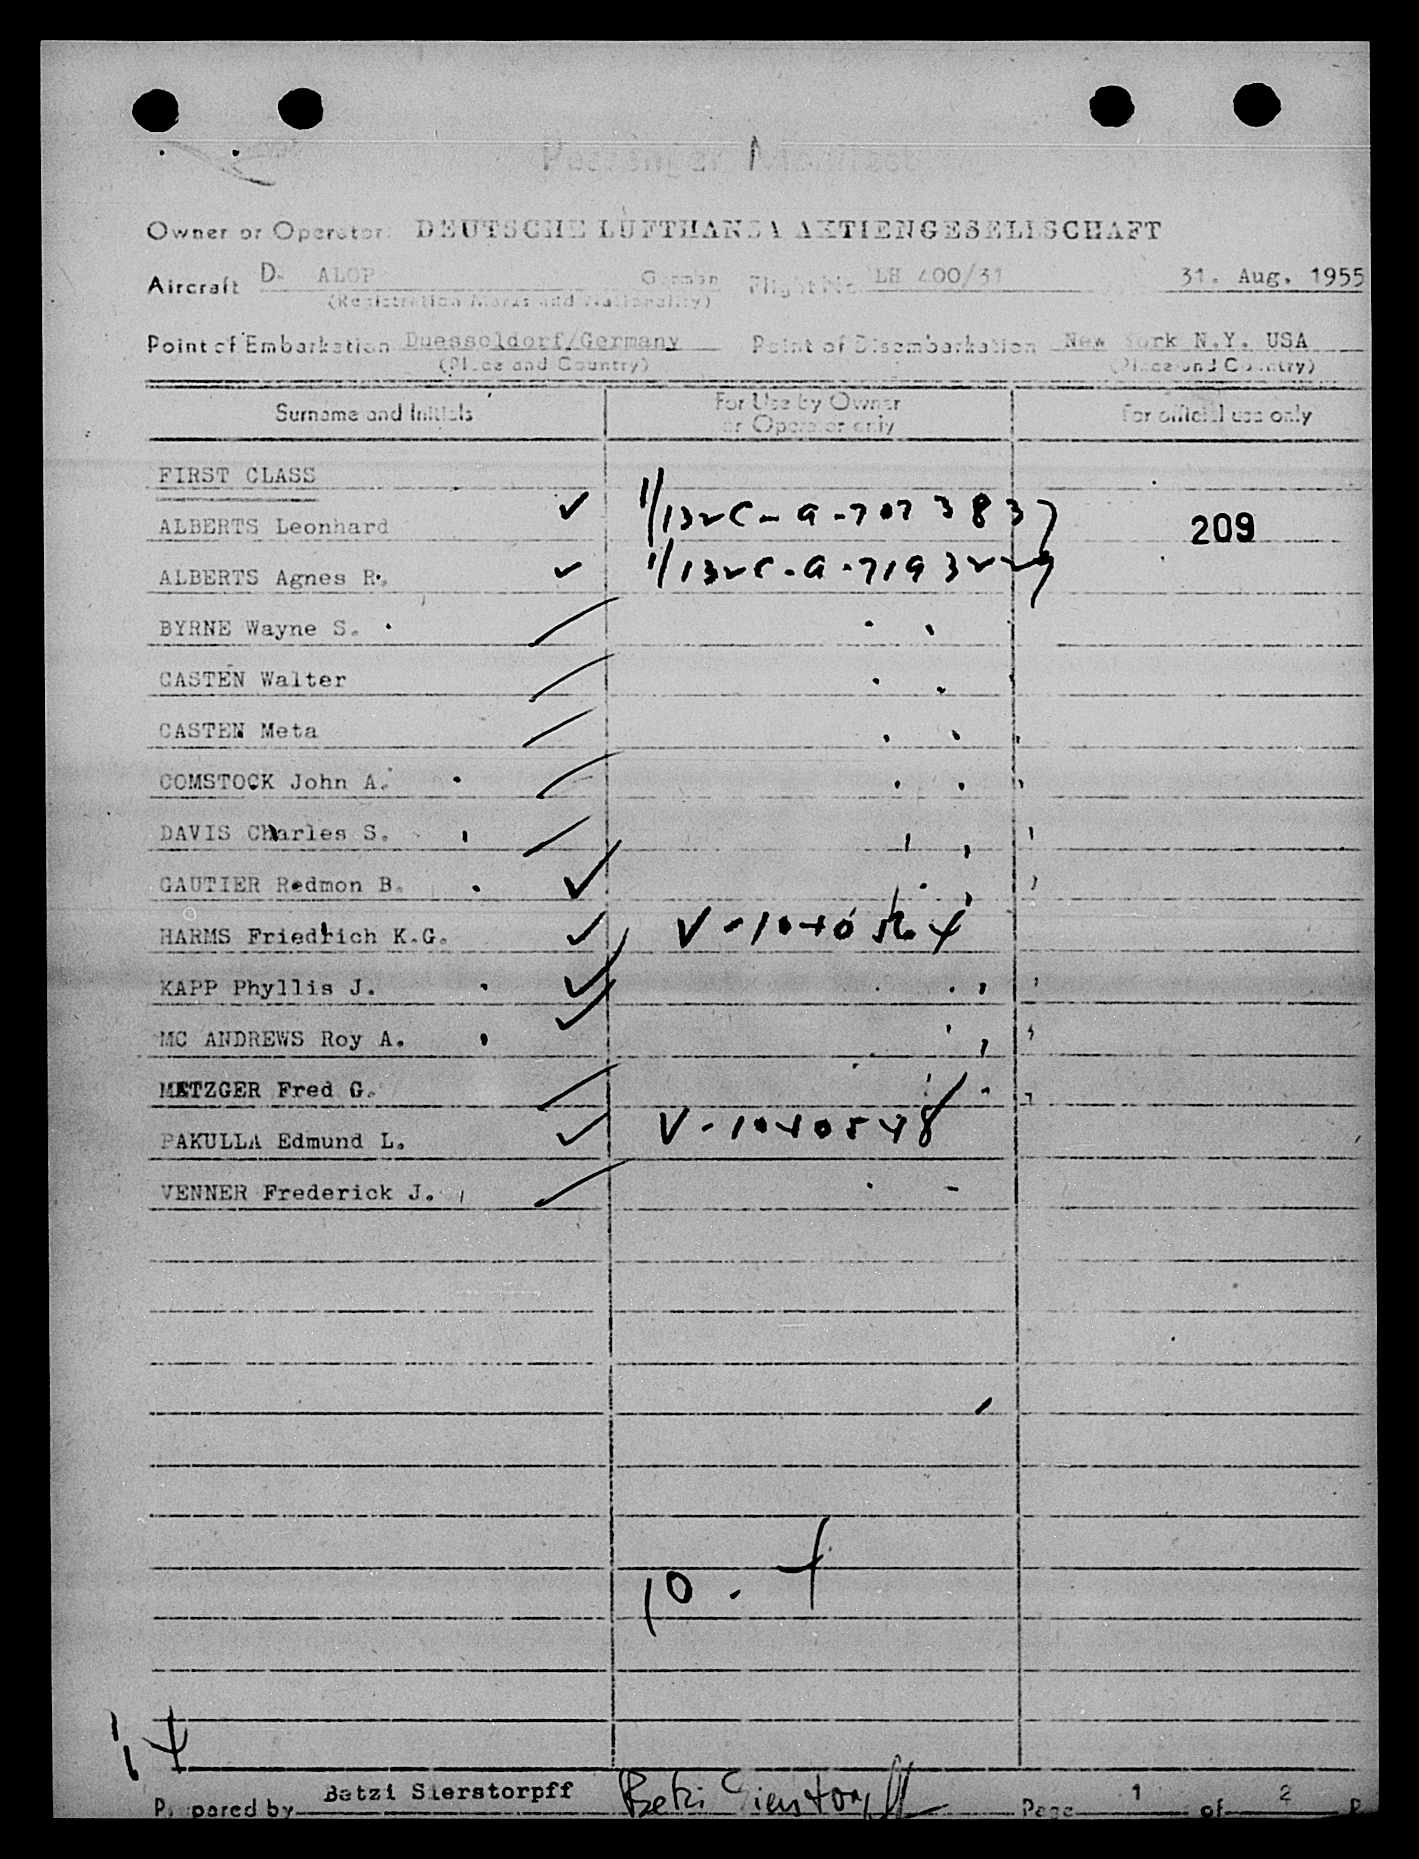 Passenger Manifest
Owner or Operator: DEUTSCHE LUFTHANSA AKTIENGESELLSCHAFT
Aircraft D- ALOP German Flight No. LH 400/31 31. Aug. 1955
(Registration Marks and Nationality)
Point of Embarkation Duesseldorf/Germany Point of Disembarkation New York N.Y. USA
(Place and Country) (Place and Country)
Surname and Initials For Use by Owner or Operator only For official use only
FIRST CLASS
ALBERTS Leonhard 209
ALBERTS Agnes R.
BYRNE Wayne S.
CASTEN Walter
CASTEN Meta
COMSTOCK John A.
DAVIS Charles S.
GAUTIER Redmon B.
HARMS Friedrich K.G.
KAPP Phyllis J.
MC ANDREWS Roy A.
METZGER Fred G.
PAKULLA Edmund L. V-1040548
VENNER Frederick J.
10 - 4
14
Prepared by Betzi Sierstorpff Betzi Sierstorpff Page 1 of 2 P